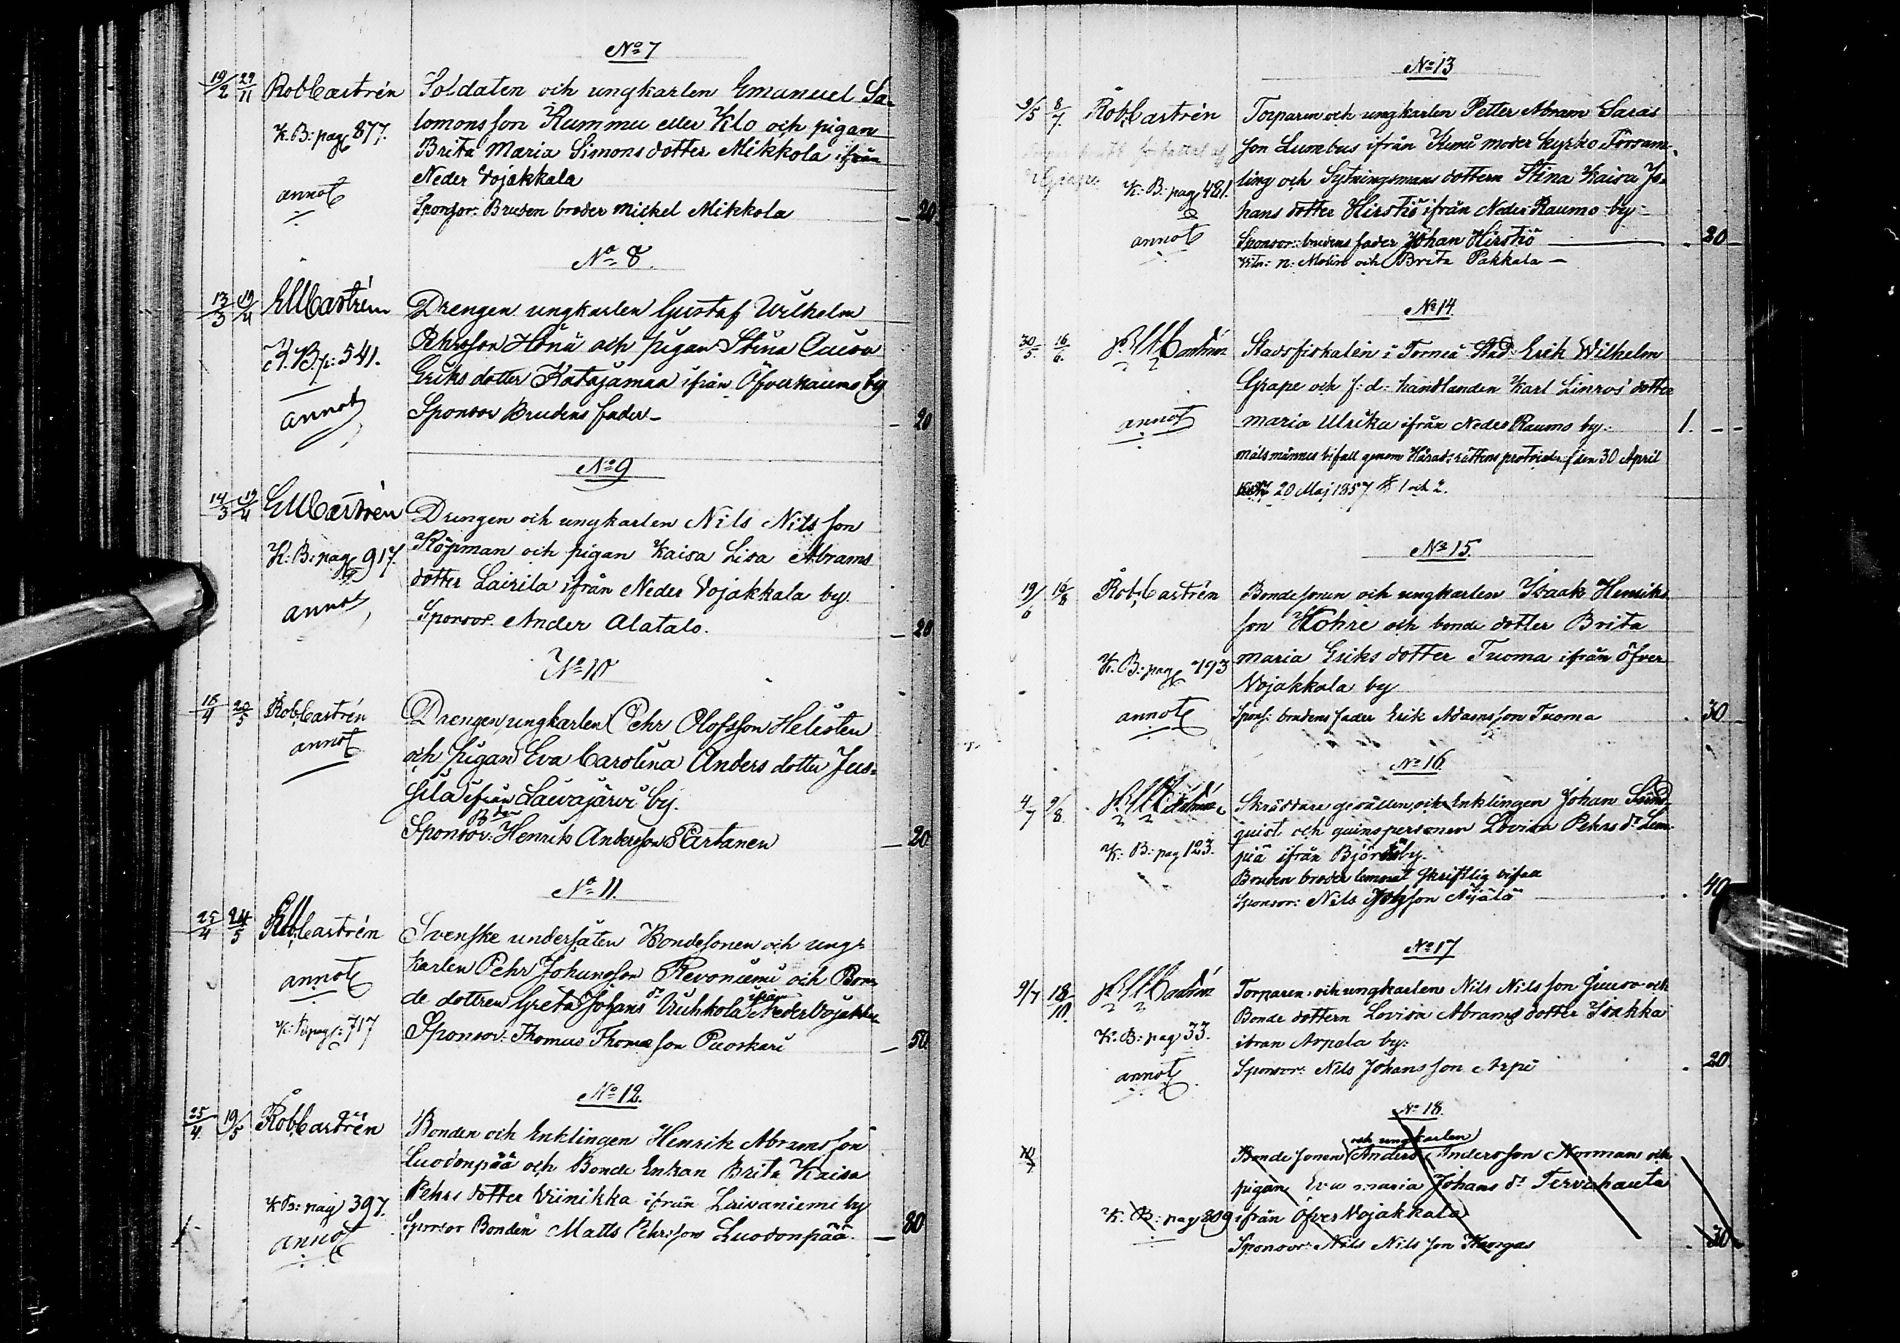 No 7
19/2 29/11 Rob Castrén Soldaten och ungkarlen Emanuel Sa-
lomonsson Kummu eller Klo och pigan
K: B: pag 877. Brita Maria Simons dotter Mikkola ifrån
Neder Vojakkala
annot Sponsor: Bruden broder Mickel Mikkola — 20
No 8.
13/3 19/4 Castrén Drengen ungkarlen Gustaf Wilhelm
Pehrsson och pigan Stina
K. B. p: 541. Eriks dotter Katajamaa ifrån Öfverraumo by
annot Sponsor Brudens fader — 20
No 9
14/3 19/4 Castrén Drengen och ungkarlen Nils Nils son
Köpman och pigan Kaisa Lisa Abrams
K: B: pag 917. dotter Lairila ifrån Neder Vojakkala by.
annot Sponsor. Ander Alatalo. — 20
No 10
15/4 20/5 Rob Castrén Drengen, ungkarlen Pehr Olofsson Helisten
annot och pigan Eva Carolina Anders dotter Jus-
sila ifrån Laivajärvi by.
Sponsor: Henrik Andersson Partanen — 20
No 11.
25/4 24/5 Castrén Svenske undersåten Bondesonen och ung-
karlen Pehr Johansson Revoniemi och Bon-
annot de dottren Greta Johans dr ifrån Neder Vojakkala
K: B: pag: 717 Sponsor: Thomas Thomasson Puoskari — 50
No 12.
25/4 19/5 Rob Castrén Bonden och Enklingen Henrik Abramsson
Luodonpää och Bonde Enkan Brita Kaisa
K: B: pag 397. Pehrs dotter Viinikka ifrån Laivaniemi by
annot Sponsor Bonden Matts Pehrsson Luodonpää. — 80
No 13
9/5 8/7. Rob Castrén Torparen och ungkarlen Petter Abram
son Lumbus ifrån Kemi moder kyrko Försam-
K: B: pag 481. ling och Sytningsmans dottern Stina Kaisa Jo-
hans dotter Hirstiö ifrån Neder Raumo by
annot Sponsor: brudens fader Johan Hirstiö — 20
n: Molin och Brita Pakkala —
No 14
30/5 16/6. Stadsfiskalen i Torneå Stad Erik Wilhelm
Grape och f: d: handlanden Karl Linros' dotter
annot maria Ulrika ifrån Neder Raumo by. 1. — —
målsmännes bifall genom Härads rättens protocoller den 30 April
20 Maj 1857 § 1 och 2.
No 15
19/6 16/8 Rob Castrén Bondesonen och ungkarlen Isaak Henriks
son Kohre och bonde dotter Brita
K: B: pag 193 maria Eriks dotter Tuoma ifrån Öfver
Vojakkala by
annot Spons: brudens fader Erik Adamsson Tuoma 30
No 16
4/7 9/8. Skräddare gesällen, och Enklingen Johan
quist och qvinspersonen Lovisa Pehrs dr Lem-
K: B: pag 123. piä ifrån by.
broder lemnat skriftlig bifall
Sponsor: Nils Johsson Äijälä 40
No 17
9/7 18/10. Torparen och ungkarlen Nils Nils son Juuso och
Bonde dottern Lovisa Abrams dotter Isakka
K: B: pag 33. ifrån Arpela by:
annot Sponsor: Nils Johans son Arpi 20
No 18.
och ungkarlen
Bonde sonen Anders Andersson Norman och
pigan Eva maria Johans dr Tervahauta
K: B: pag 209 ifrån Öfver Vojakkala
Sponsor: Nils Nils son Kangas 30